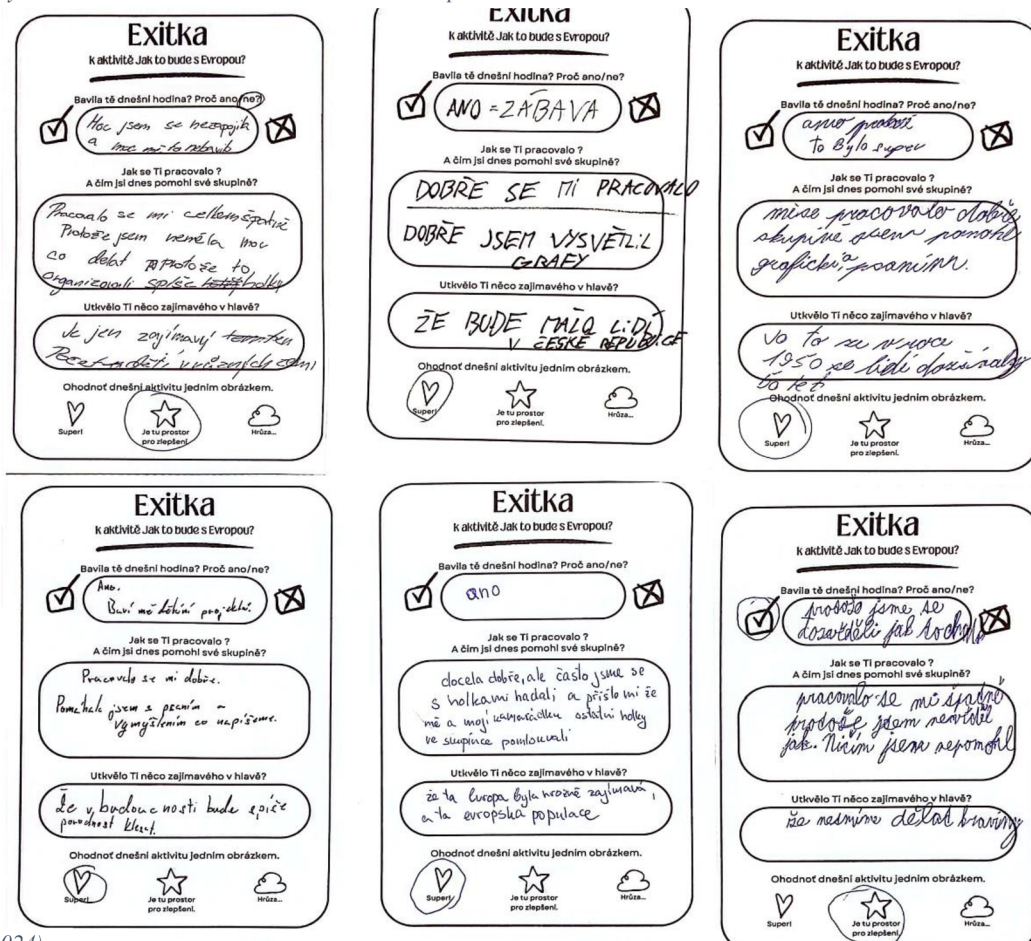 Exitka
k aktivitě Jak to bude s Evropou?
Bavila tě dnešní hodina? Proč ano/ne?
Moc jsem se nezapojila
a moc mě to nebavilo
Jak se Ti pracovalo ?
A čim jsi dnes pomohl své skupině?
Pracovalo se mi celkem špatně
Protože jsem neměla moc
co delat a protože to
organizovali spíše holky
Utkvělo Ti něco zajímavého v hlavě?
zajímavý
Ohodnoť dnešní aktivitu jedním obrázkem.
Super!
Je tu prostor
pro zlepšení.
Hrůza...
Exitka
k aktivitě Jak to bude s Evropou?
Bavila tě dnešní hodina? Proč ano/ne?
ANO = ZÁBAVA
Jak se Ti pracovalo ?
A čim jsi dnes pomohl své skupině?
DOBŘE SE MI PRACOVALO
DOBŘE JSEM VYSVĚTLIL
GRAFY
Utkvělo Ti něco zajímavého v hlavě?
ŽE BUDE MÁLO LIDÍ
V ČESKÉ REPUBLICE
Ohodnoť dnešní aktivitu jedním obrázkem.
Super!
Je tu prostor
pro zlepšení.
Hrůza...
Exitka
k aktivitě Jak to bude s Evropou?
Bavila tě dnešní hodina? Proč ano/ne?
ano protože
to Bylo super
Jak se Ti pracovalo ?
A čim jsi dnes pomohl své skupině?
mi se pracovalo dobře
skupině jsem pomohl
graficky a psaním.
Utkvělo Ti něco zajímavého v hlavě?
to v roce
1950 se lidi dožívaly
let
Ohodnoť dnešní aktivitu jedním obrázkem.
Super!
Je tu prostor
pro zlepšení.
Hrůza...
Exitka
k aktivitě Jak to bude s Evropou?
Bavila tě dnešní hodina? Proč ano/ne?
Ano.
Baví mě dělání projektů.
Jak se Ti pracovalo ?
A čim jsi dnes pomohl své skupině?
Pracovalo se mi dobře.
Pomohala jsem s psaním a
vymyšlením co napíšeme.
Utkvělo Ti něco zajímavého v hlavě?
Že v budoucnosti bude spíše
porodnost klesat.
Ohodnoť dnešní aktivitu jedním obrázkem.
Super!
Je tu prostor
pro zlepšení.
Hrůza...
Exitka
k aktivitě Jak to bude s Evropou?
Bavila tě dnešní hodina? Proč ano/ne?
ano
Jak se Ti pracovalo ?
A čim jsi dnes pomohl své skupině?
docela dobře, ale často jsme se
s holkami hadali a přišlo mi že
mě a moji kamarádku ostatní holky
ve skupince pomlouvali
Utkvělo Ti něco zajímavého v hlavě?
že ta Evropa byla hrozně zajímavá,
a ta evropská populace
Ohodnoť dnešní aktivitu jedním obrázkem.
Super!
Je tu prostor
pro zlepšení.
Hrůza...
Exitka
k aktivitě Jak to bude s Evropou?
Bavila tě dnešní hodina? Proč ano/ne?
jsme se
dozvěděli jak to
Jak se Ti pracovalo ?
A čim jsi dnes pomohl své skupině?
pracovalo se mi špadně
protože jsem nevěděl
jak. Ničím jsem nepomohl
Utkvělo Ti něco zajímavého v hlavě?
že nesmíme dělat kraviny
Ohodnoť dnešní aktivitu jedním obrázkem.
Super!
Je tu prostor
pro zlepšení.
Hrůza...